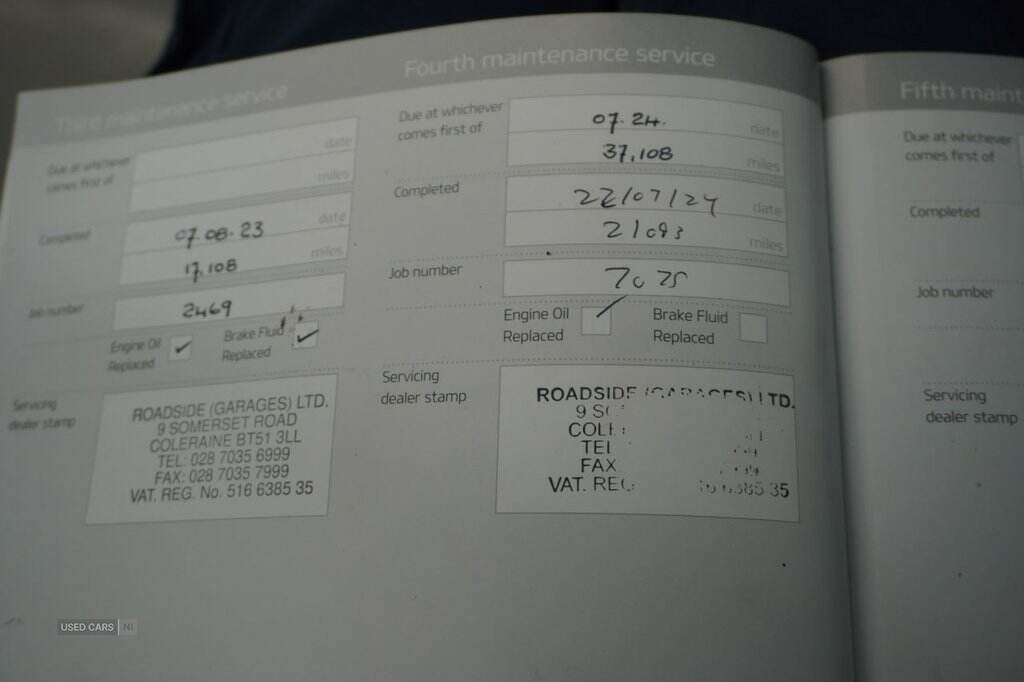 Third maintenance service
Due at whichever
comes first of
date
miles
Completed
07.08.23 date
17,108 miles
Job number
2469
Engine Oil
Replaced
Brake Fluid
Replaced
Servicing
dealer stamp
ROADSIDE (GARAGES) LTD.
9 SOMERSET ROAD
COLERAINE BT51 3LL
TEL: 028 7035 6999
FAX: 028 7035 7999
VAT. REG. No. 516 6385 35
Fourth maintenance service
Due at whichever
comes first of
07.24. date
37,108 miles
Completed
22/07/24 date
21093 miles
Job number
Engine Oil
Replaced
Brake Fluid
Replaced
Servicing
dealer stamp
ROADSIDE (GARAGES) LTD.
9
TEL
FAX
VAT. REG. 6385 35
Fifth maint
Due at whichever
comes first of
Completed
Job number
Servicing
dealer stamp
USED CARS NI